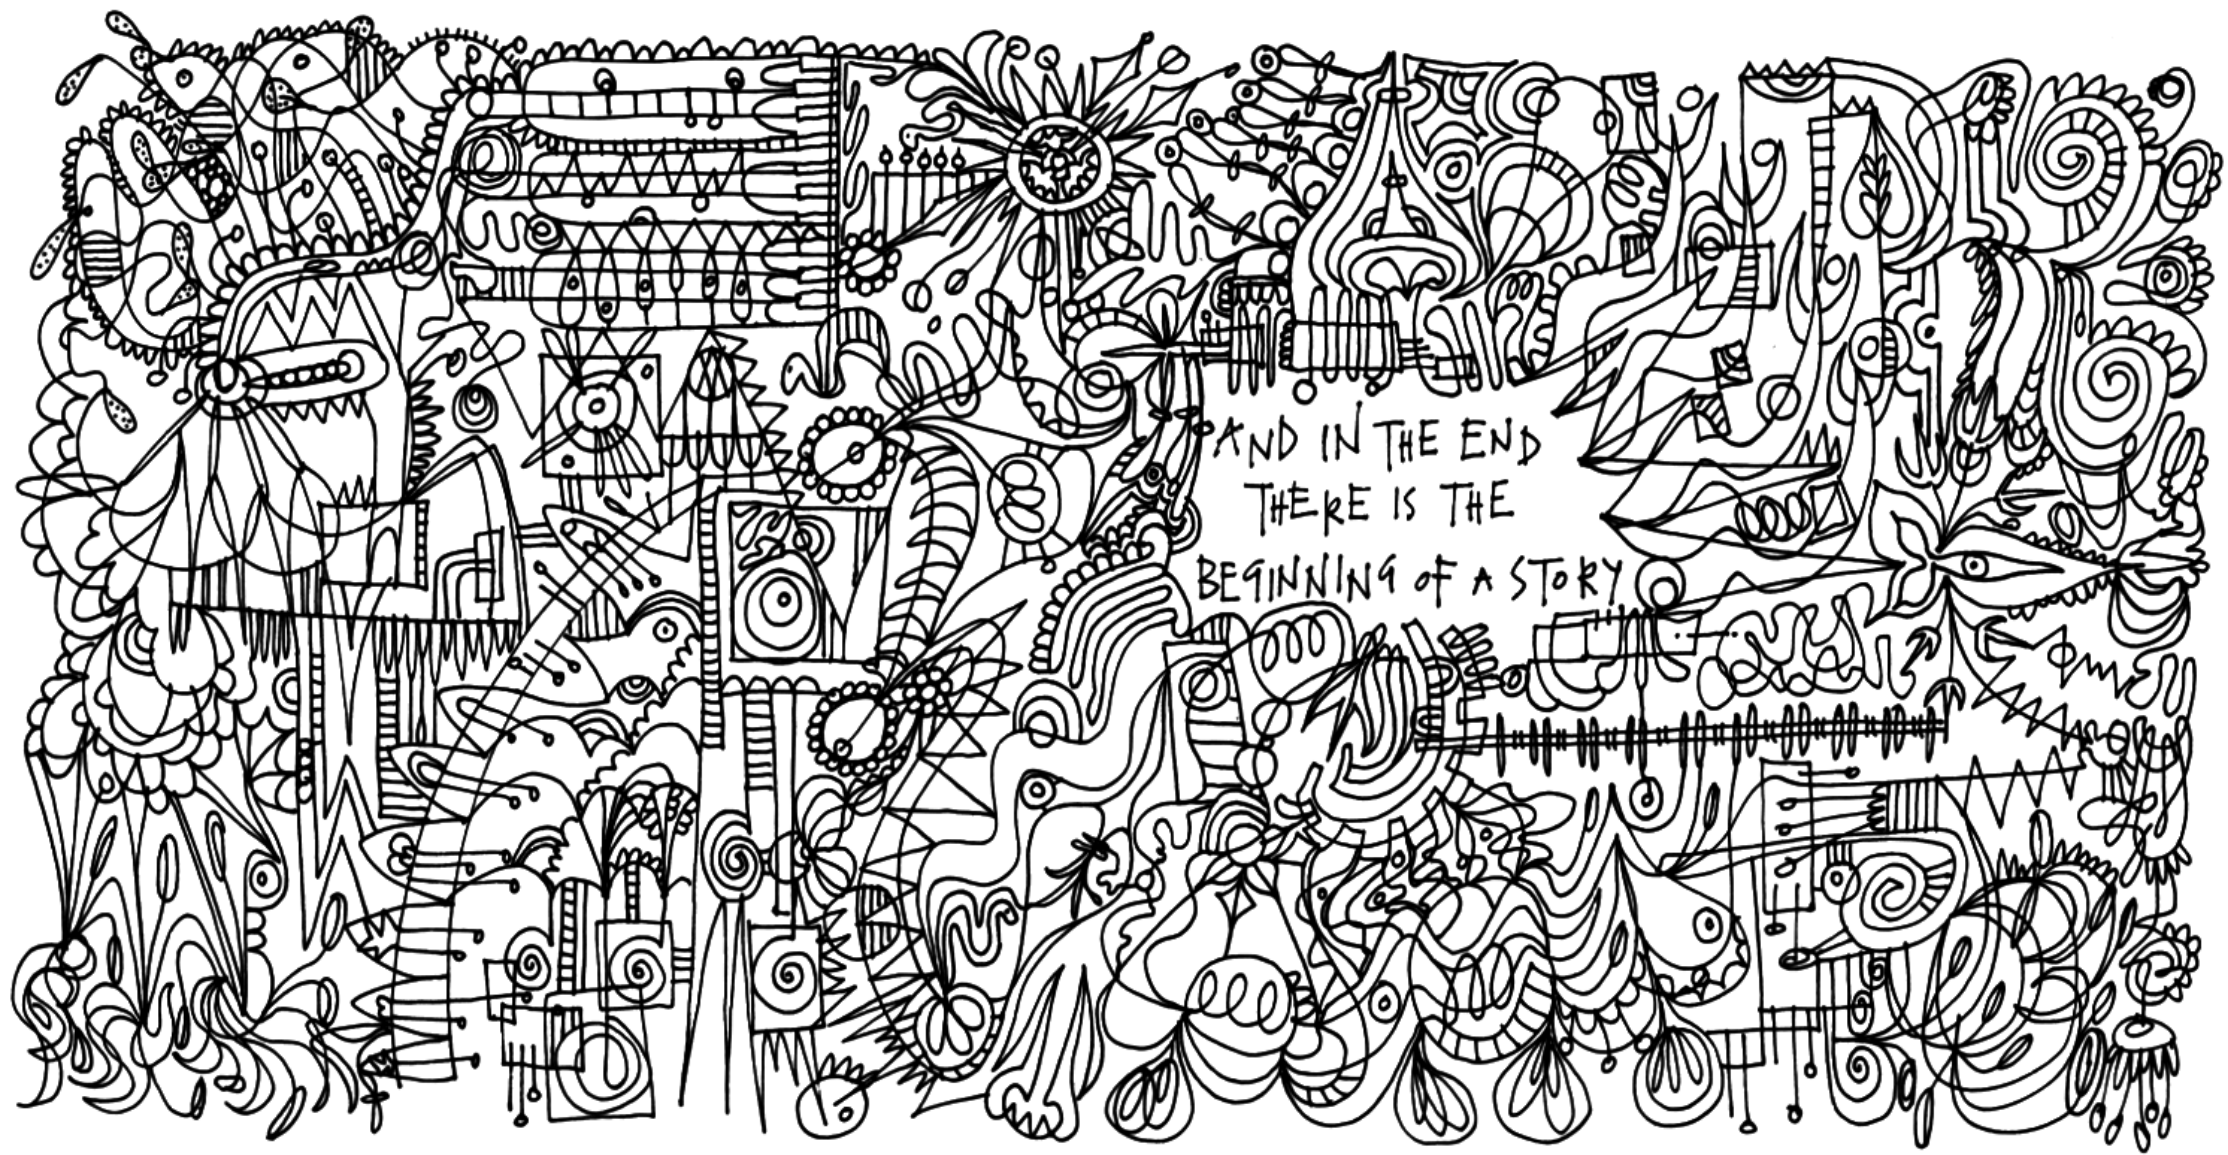 AND IN THE END
THERE IS THE
BEGINNING OF A STORY